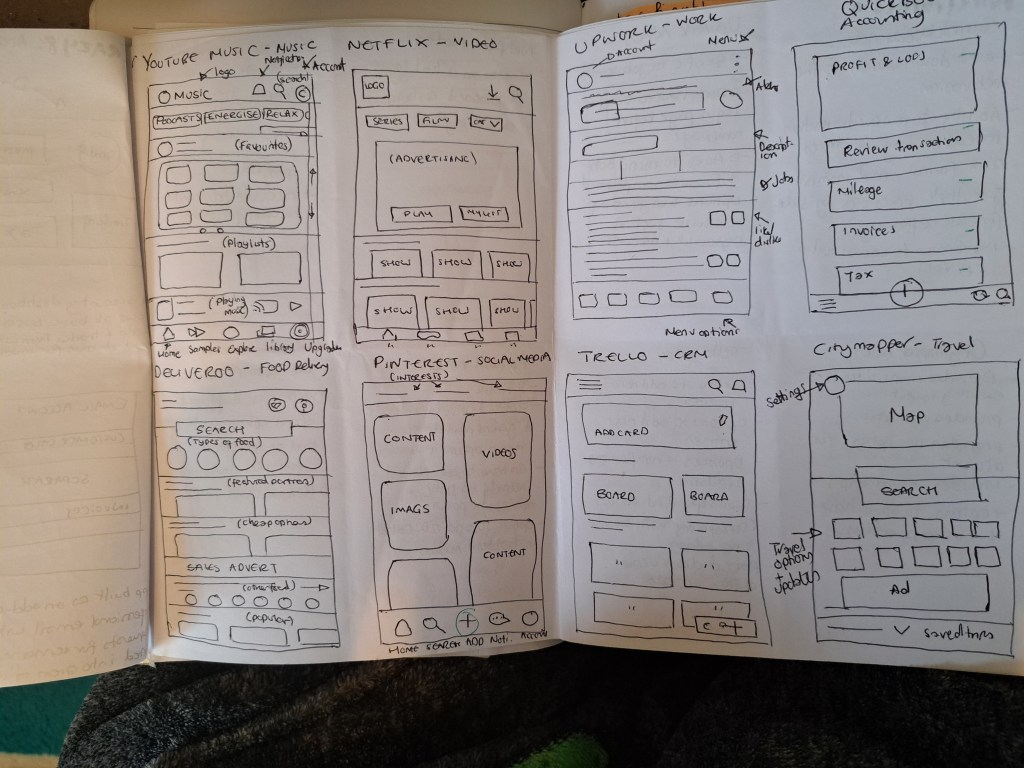 YOUTUBE MUSIC - MUSIC
logo
Account
(search)
MUSIC
PODCASTS ENERGISE RELAX
(Favourites)
(Playlists)
(Playing music)
Home Samples Explore library Upgrade
NETFLIX - VIDEO
LOGO
SERIES FILM
(ADVERTISING)
PLAY MY LIST
SHOW SHOW SHOW
SHOW SHOW SHOW
UPWORK - WORK
Account
Menu
Alerts
Descript-ion
Jobs
like/dislike
Menu options
Accounting
PROFIT & LOSS
Review transactions
Mileage
Invoices
Tax
DELIVEROO - FOOD Delivery
SEARCH
(Types of food)
(featured partners)
(cheap options)
SALES ADVERT
(other food)
(popular)
PINTEREST - SOCIAL MEDIA
(INTERESTS)
CONTENT
VIDEOS
IMAGS
CONTENT
HOME SEARCH ADD Noti. Account
TRELLO - CRM
ADD CARD
BOARD BOARD
" "
" "
Citymapper - Travel
settings
Map
SEARCH
Travel options + updates
Ad
saved trips